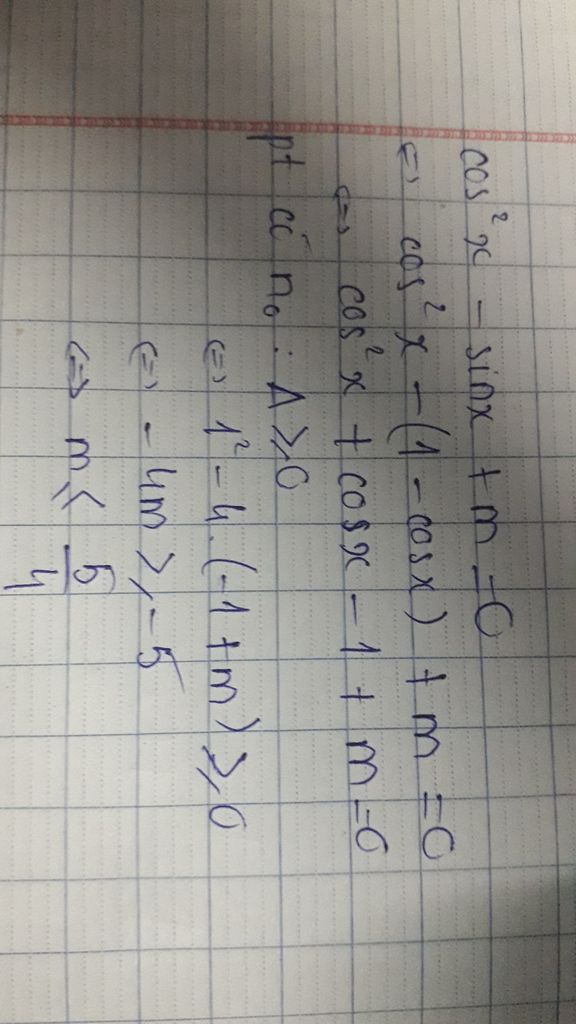 cos²x - sinx + m = 0
⇔ cos²x - (1 - cosx) + m = 0
⇔ cos²x + cosx - 1 + m = 0
pt có n₀ : Δ ⩾ 0
⇔ 1² - 4.(-1 + m) ⩾ 0
⇔ -4m ⩾ -5
⇔ m ⩽ 5/4